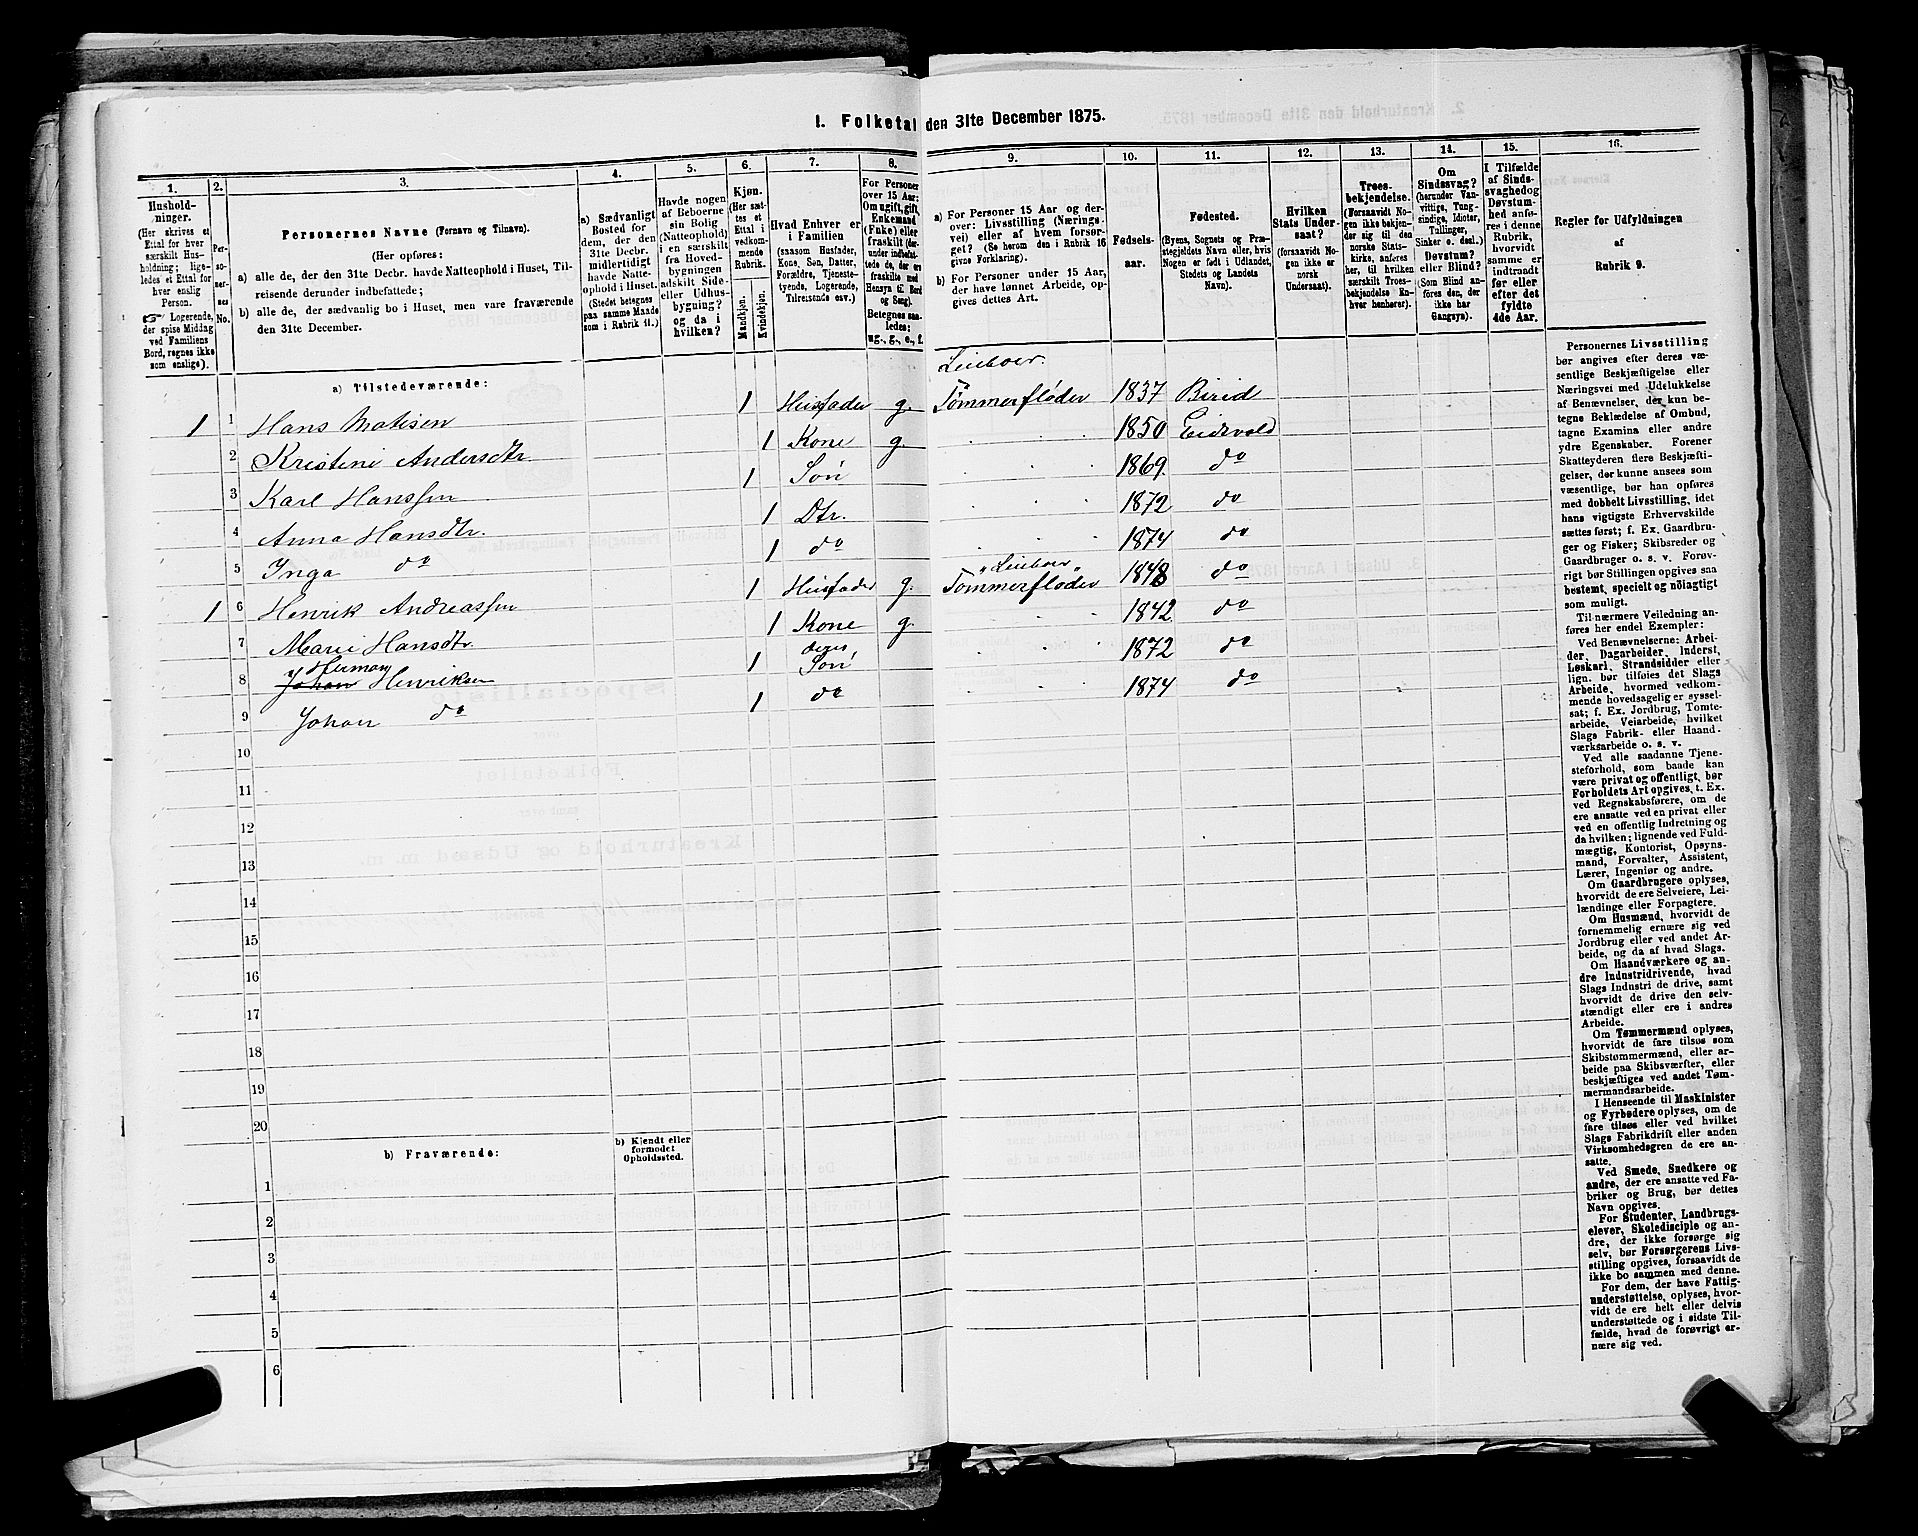 1. Folketal den 31te December 1875.
1.
2.
3.
4.
5.
6.
7.
8.
9.
10.
11.
12.
13.
14.
15.
16.
Hushold-
ninger.
(Her skrives et
Ettal for hver
særskilt Hus-
holdning; lige-
ledes et Ettal for
hver enslig
Person.
☞ Logerende,
der spise Middag
ved Familiens
Bord, regnes ikke
som enslige).
Per-
so-
ner-
nes
No.
Personernes Navne (Fornavn og Tilnavn).
(Her opføres:
a) alle de, der den 31te Decbr. havde Natteophold i Huset, Til-
reisende derunder indbefattede;
b) alle de, der sædvanlig bo i Huset, men vare fraværende
den 31te December.
a) Sædvanligt
Bosted for
dem, der den
31te Decbr.
midlertidigt
havde Natte-
ophold i Huset.
(Stedet betegnes
paa samme Maade
som i Rubrik 11.)
Havde nogen
af Beboerne
sin Bolig
(Natteophold)
i en særskilt
fra Hoved-
bygningen
adskilt Side-
eller Udhus-
bygning?
og da i
hvilken?
Kjøn.
(Her sæt-
tes et
Ettal i
vedkom-
mende
Rubrik.
Mandkjøn.
Kvindekjøn.
Hvad Enhver er
i Familien
(saasom Husfader,
Kone, Søn, Datter,
Forældre, Tjeneste-
tyende, Logerende,
Tilreisende osv.)
For Personer
over 15 Aar:
Om ugift, gift,
Enkemand
(Enke) eller
fraskilt (der-
under indbefat-
tede de, der ere
fraskilte med
Hensyn til Bord
og Seng).
Betegnes saa-
ledes:
ug., g., e., f.
a) For Personer 15 Aar og der-
over: Livsstilling (Nærings-
vei) eller af hvem forsør-
get? (Se herom den i Rubrik 16
givne Forklaring).
b) For Personer under 15 Aar,
der have lønnet Arbeide, op-
gives dettes Art.
Fødsels-
aar.
Fødested.
(Byens, Sognets og Præ-
stegjeldets Navn eller, hvis
Nogen er født i Udlandet,
Stedets og Landets
Navn).
Hvilken
Stats Under-
saat?
(forsaavidt No-
gen ikke er
norsk
Undersaat).
Troes-
bekjendelse.
(Forsaavidt No-
gen ikke bekjen-
der sig til den
norske Stats-
kirke, anføres
her, til hvilken
særskilt Troes-
bekjendelse En-
hver henhører).
Om
Sindssvag?
(herunder Van-
vittige, Tung-
sindige, Idioter,
Tullinger,
Sinker o. desl.).
Døvstum?
eller Blind?
(Som Blind an-
føres den, der
ikke har
Gangsyn).
I Tilfælde
af Sinds-
svaghedog
Døvstum-
hed anfø-
res i denne
Rubrik,
hvorvidt
samme er
indtraadt
før eller
efter det
fyldte
4de Aar.
Regler for Udfyldningen
af
Rubrik 9.
a) Tilstedeværende:
Leieboer.
1 1 Hans Matisen 1 Husfader g. Tømmerfløder 1837 Birid
2 Kristine Andersdtr. 1 Kone g 1850 Eidsvold
3 Karl Hanssen 1 Søn 1869. do
4 Anna Hansdtr. 1 Dtr. 1872 do
5 Inga do 1 do 1874 do
"Leieboer"
1 6 Henrik Andreassen 1 Husfader g. Tømmerfløder 1848 do
7 Marie Hansdtr. 1 Kone g. 1842 do
Herman deres
8 Johan Henriksen 1 Søn 1872 do
9 Johan do 1 do 1874 do
10
11
12
13
14
15
16
17
18
19
20
b) Fraværende:
b) Kjendt eller
formodet
Opholdssted.
1
2
3
4
5
6
Personernes Livsstilling
bør angives efter deres væ-
sentlige Beskjæftigelse eller
Næringsvei med Udelukkelse
af Benævnelser, der kun be-
tegne Beklædelse af Ombud,
tagne Examina eller andre
ydre Egenskaber. Forener
Skatteyderen flere Beskjæfti-
gelser, der kunne ansees som
væsentlige, bør han opføres
med dobbelt Livsstilling, idet
hans vigtigste Erhvervskilde
sættes først; f. Ex. Gaardbru-
ger og Fisker; Skibsreder og
Gaardbruger o. s. v. Forøv-
rigt bør Stillingen opgives saa
bestemt, specielt og nøiagtigt
som muligt.
Til nærmere Veiledning an-
føres her endel Exempler:
Ved Benævnelserne: Arbei-
der, Dagarbeider, Inderst,
Løskarl, Strandsidder eller
lign. bør tilføies det Slags
Arbeide, hvormed vedkom-
mende hovedsagelig er syssel-
sat; f. Ex. Jordbrug, Tomte-
arbeide, Veiarbeide, hvilket
Slags Fabrik- eller Haand-
værksarbeide o. s. v.
Ved alle saadanne Tjene-
steforhold, som baade kan
være privat og offentligt, bør
Forholdets Art opgives, t. Ex.
ved Regnskabsførere, om de
ere ansatte ved en privat eller
ved en offentlig Indretning og
da hvilken; lignende ved Fuld-
mægtig, Kontorist, Opsyns-
mand, Forvalter, Assistent,
Lærer, Ingeniør og andre.
Om Gaardbrugere oplyses,
hvorvidt de ere Selveiere, Lei-
lændinge eller Forpagtere.
Om Husmænd, hvorvidt de
fornemmelig ernære sig ved
Jordbrug eller ved andet Ar-
beide, og da af hvad Slags.
Om Haandværkere og an-
dre Industridrivende, hvad
Slags Industri de drive, samt
hvorvidt de drive den selv-
stændigt eller ere i andres
Arbeide.
Om Tømmermænd oplyses,
hvorvidt de fare tilsøs som
Skibstømmermænd, eller ar-
beide paa Skibsværfter, eller
beskjæftiges ved andet Tøm-
mermandsarbeide.
I Henseende til Maskinister
og Fyrbødere oplyses, om de
fare tilsøs eller ved hvilket
Slags Fabrikdrift eller anden
Virksomhedsgren de ere an-
satte.
Ved Smede, Snedkere og
andre, der ere ansatte ved Fa-
briker og Brug, bør dettes
Navn opgives.
For Studenter, Landbrugs-
elever, Skoledisciple og an-
dre, der ikke forsørge sig
selv, bør Forsørgerens Livs-
stilling opgives, forsaavidt de
ikke bo sammen med denne.
For dem, der have Fattig-
understøttelse, oplyses, hvor-
vidt de ere helt eller delvis
understøttede og i sidste Til-
fælde, hvad de forøvrigt er-
nære sig ved.